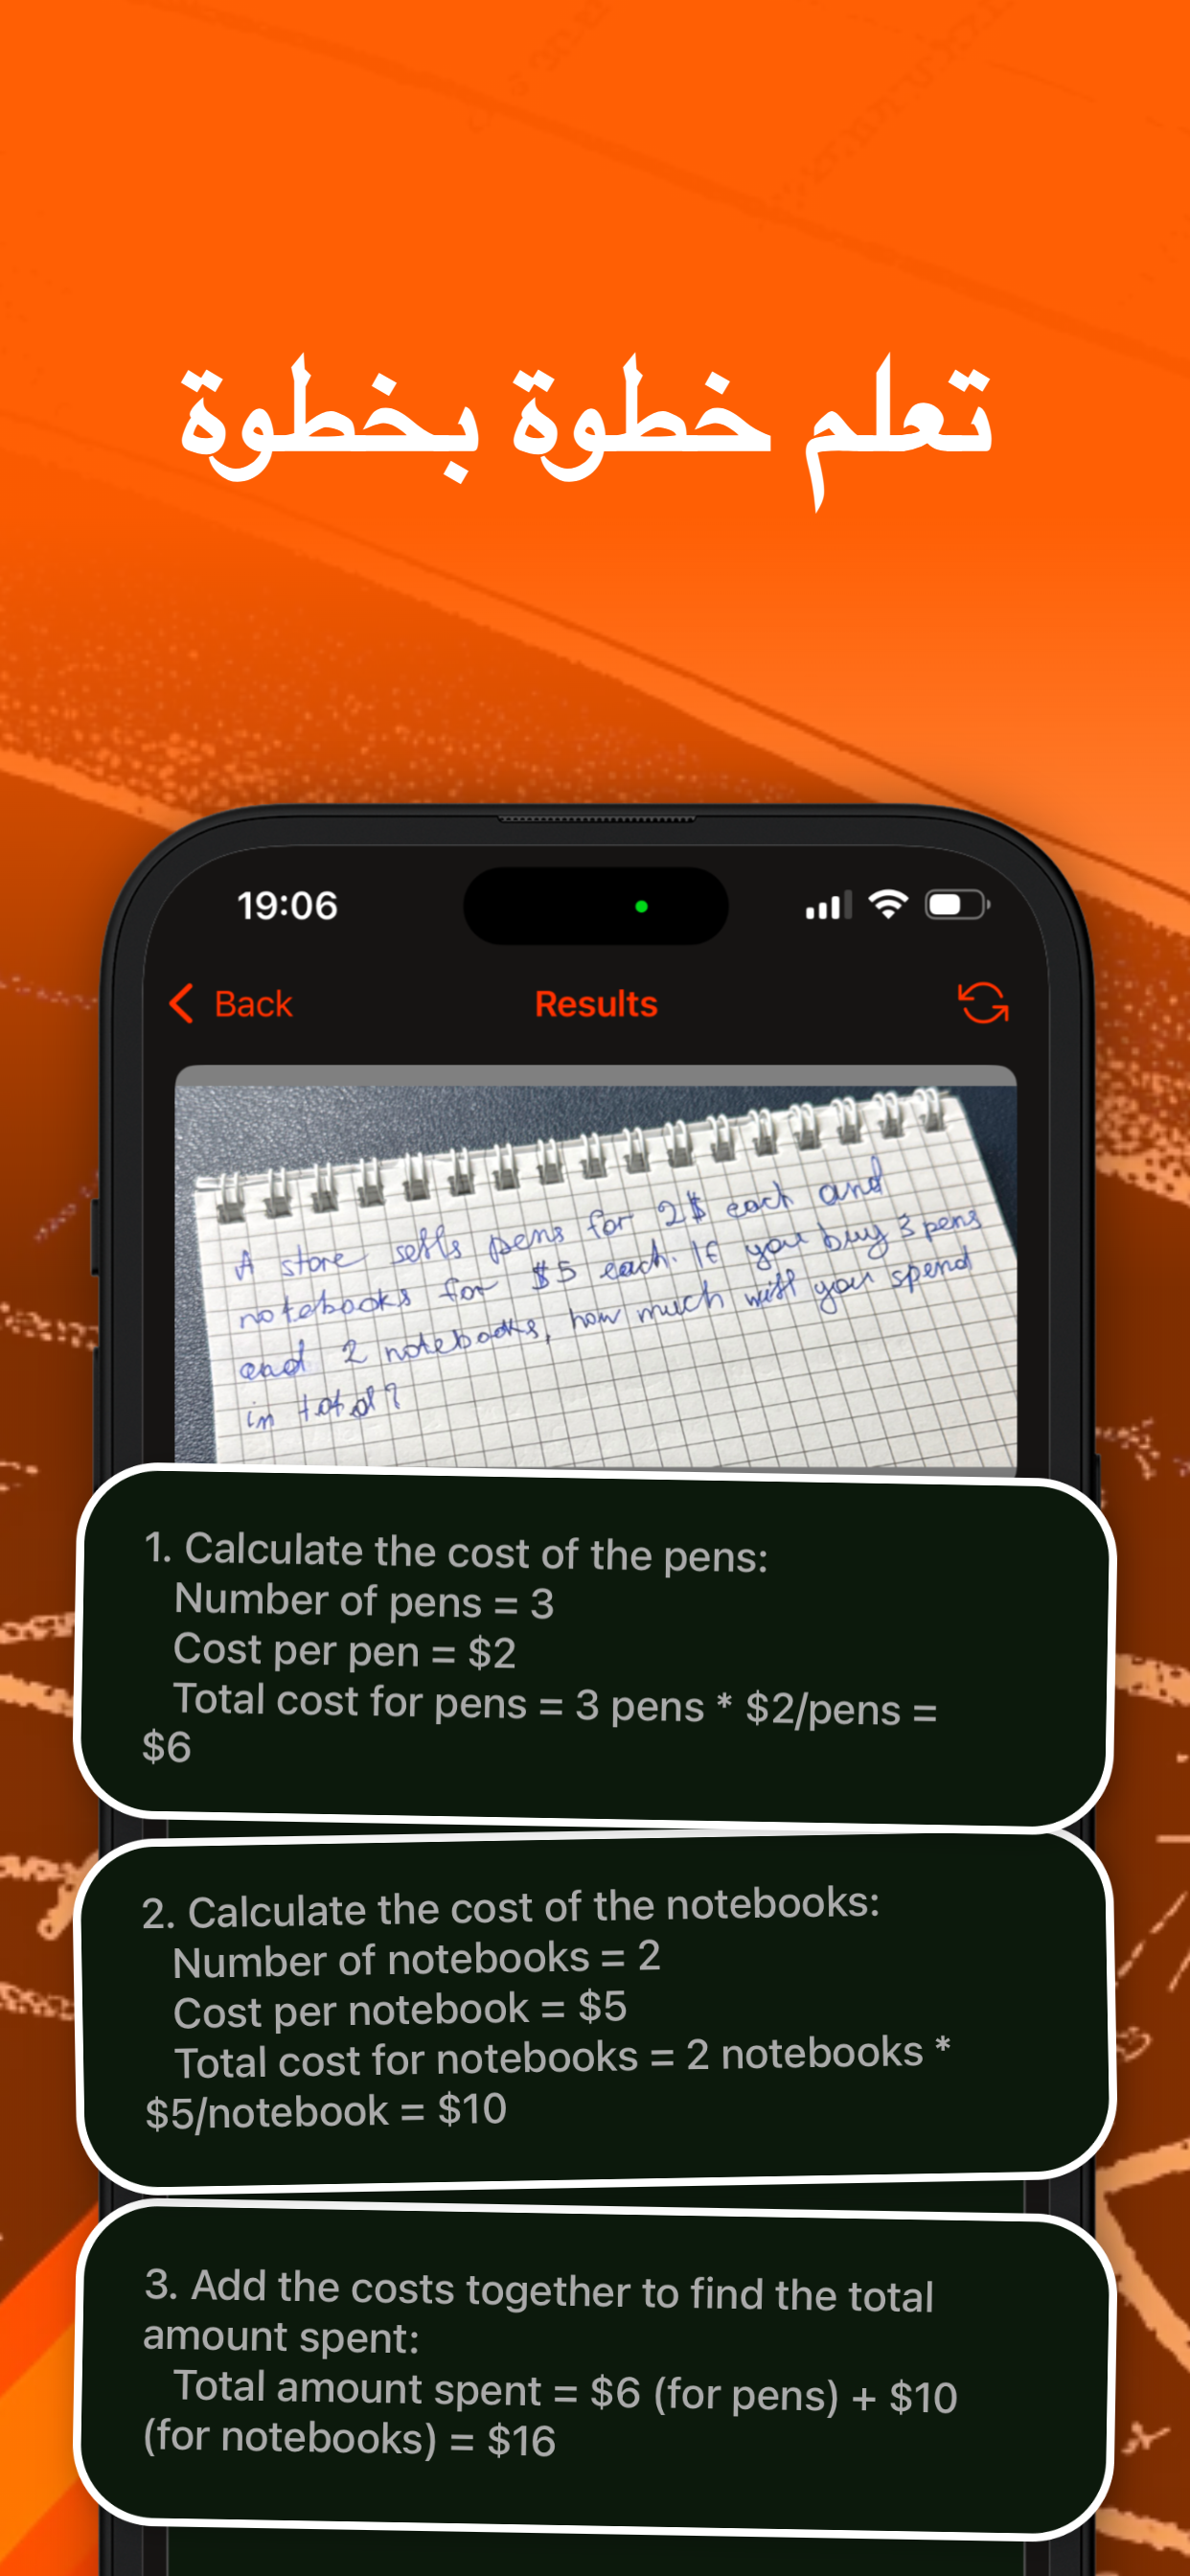 تعلم خطوة بخطوة
19:06
Back
Results
A store sells pens for 2$ each and
notebooks for $5 each. If you buy 3 pens
and 2 notebooks, how much will you spend
in total?
1. Calculate the cost of the pens:
Number of pens = 3
Cost per pen = $2
Total cost for pens = 3 pens * $2/pens =
$6
2. Calculate the cost of the notebooks:
Number of notebooks = 2
Cost per notebook = $5
Total cost for notebooks = 2 notebooks *
$5/notebook = $10
3. Add the costs together to find the total
amount spent:
Total amount spent = $6 (for pens) + $10
(for notebooks) = $16